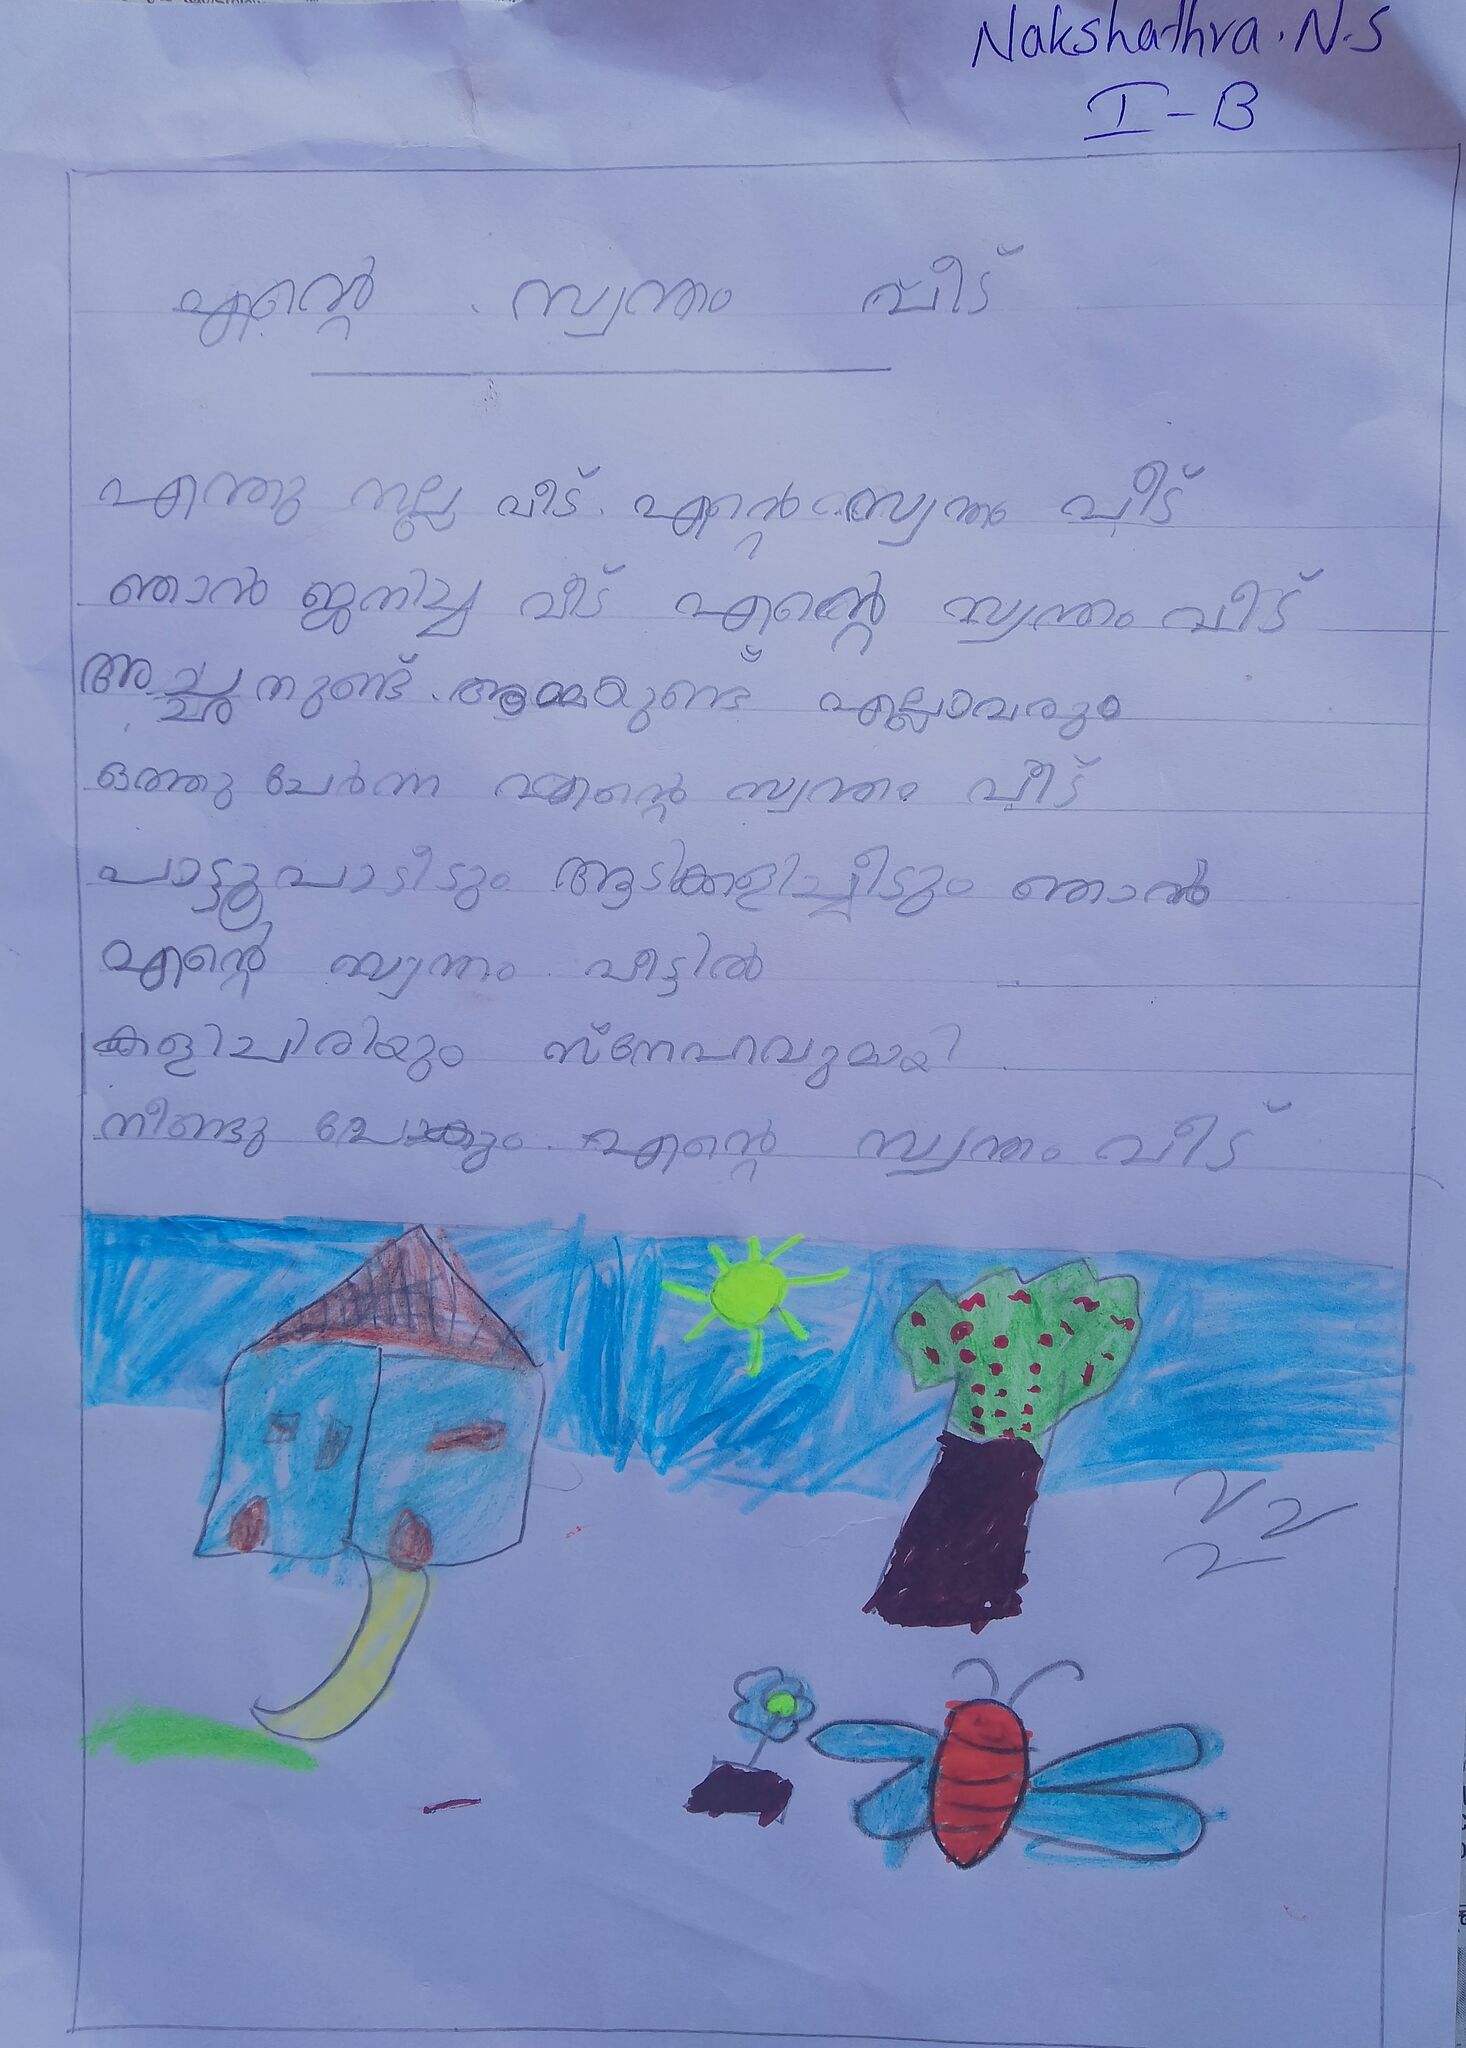 Nakshathra. N.S
I - B
എന്റെ സ്വന്തം വീട്
എന്തു നല്ല വീട് എന്റെ സ്വന്തം വീട്
ഞാൻ ജനിച്ച വീട് എന്റെ സ്വന്തം വീട്
അച്ഛനുണ്ട് അമ്മയുണ്ട് എല്ലാവരും
ഒത്തു ചേർന്ന എന്റെ സ്വന്തം വീട്
പാട്ടുപാടീടും ആടിക്കളിച്ചീടും ഞാൻ
എന്റെ സ്വന്തം വീട്ടിൽ
കളിചിരിയും സ്നേഹവുമായി
നീണ്ടു പോകും എന്റെ സ്വന്തം വീട്